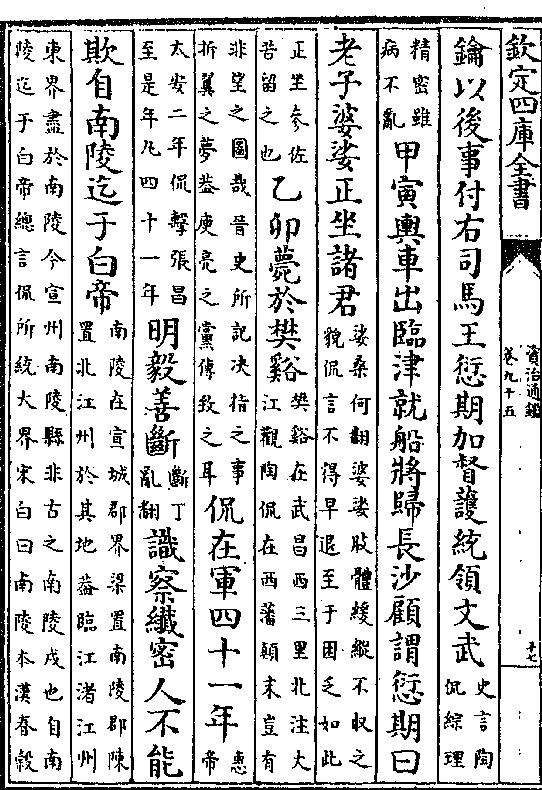 欽定四庫全書
資治通鑑
卷九十五
十七
鑰以後事付右司馬王愆期加督護統領文武史言陶侃綜理
精密雖病不亂甲寅輿車出臨津就船將歸長沙顧謂愆期曰
老子婆娑正坐諸君娑桑何翻婆娑肢體緩縱不收之貌侃言不得早退至于困乏如此
正坐參佐苦留之也乙卯薨於樊谿樊谿在武昌西三里北注大江觀陶侃在西藩顛末豈有
非望之圖哉晉史所記決指之事折翼之夢葢庾亮之黨傅致之耳侃在軍四十一年惠帝
太安二年侃擊張昌至是年凡四十一年明毅善斷斷丁亂翻識察纖密人不能
欺自南陵迄于白帝南陵在宣城郡界梁置南陵郡陳置北江州於其地葢臨江渚江州
東界盡於南陵今宣州南陵縣非古之南陵戍也自南陵迄于白帝總言侃所統大界宋白曰南陵本漢春穀